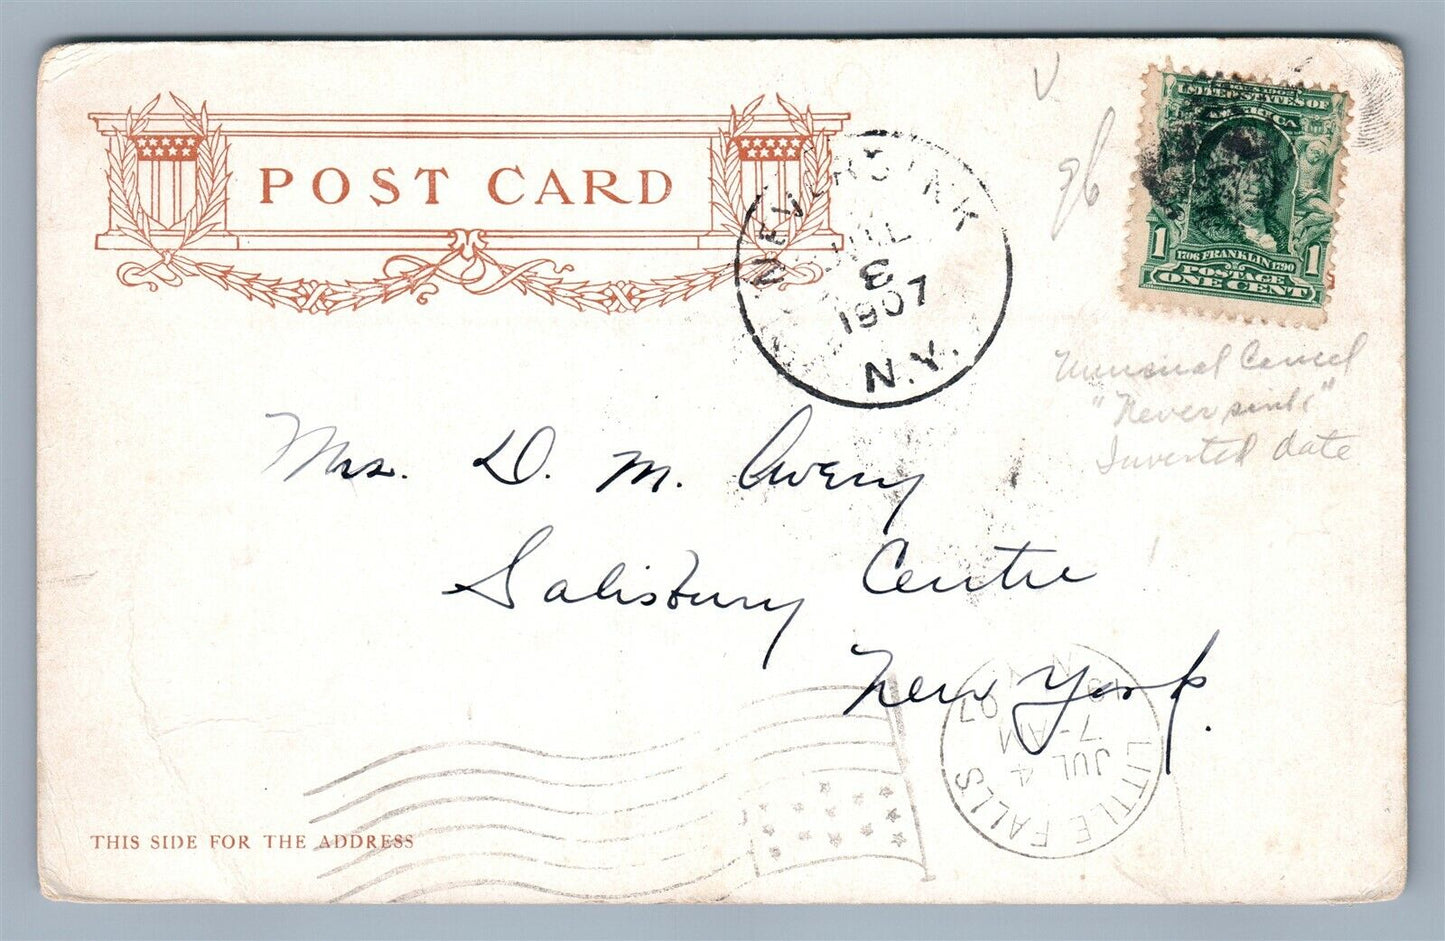 POST CARD
NEVERSINK
JUL
3
1907
N.Y.
UNITED STATES OF
AMERICA
1 1706 FRANKLIN 1790 1
POSTAGE
ONE CENT
Unusual Cancel
"Neversink"
Inverted date
Mrs. D. M. Avery
Salisbury Centre
New York.
LITTLE FALLS N.Y.
JUL 4
7-AM
07
THIS SIDE FOR THE ADDRESS